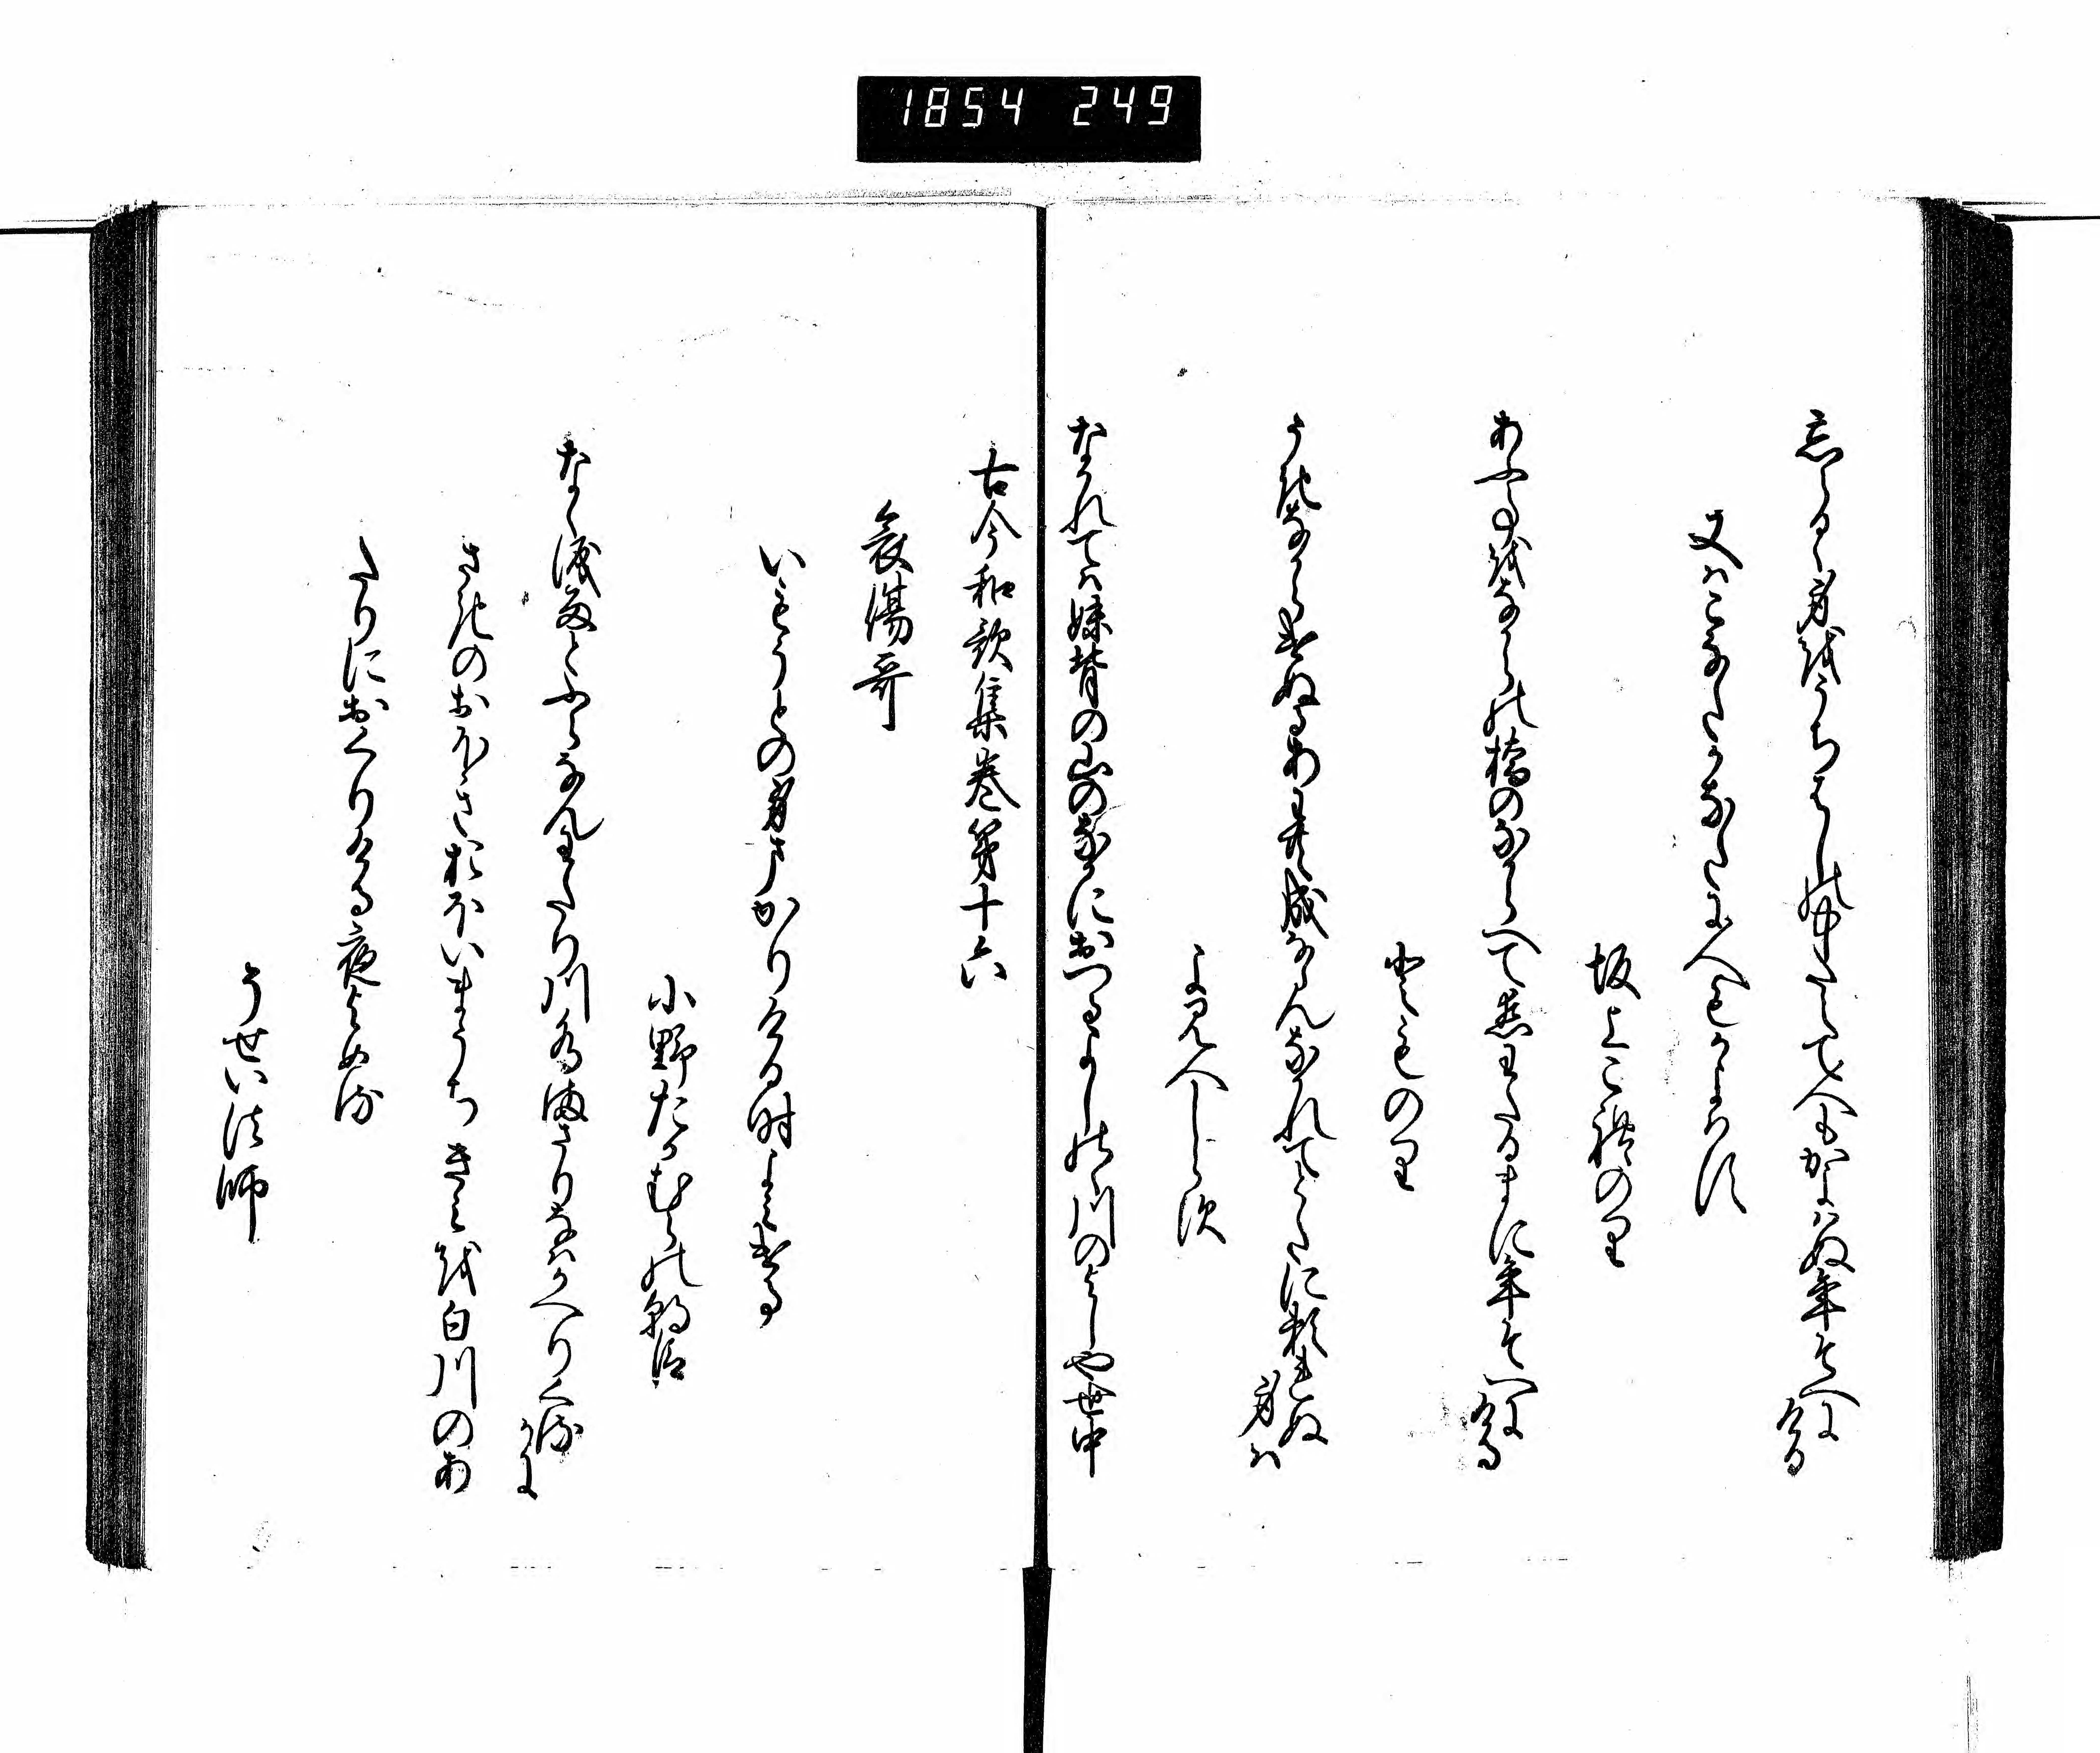 1854 249
忘らるゝ身をうちはしの中たえて人もかよはぬ年そへにける
又はこなたかなたに人もかよはす
坂上これのり
あふ事をなからの橋のなからへて恋わたるまに年そへにける
とものり
うきなからけぬるあわ共成なゝんなかれてとたに頼れぬ身は
よみ人しらす
なかれては妹背の山のなかにおつるよしのゝ川のよしや世中
古今和歌集巻第十六
哀傷哥
いもうとの身まかりける時よみける
小野たかむらの朝臣
なく涙雨とふらなんわたり川水まさりなはかへりくるかに
さきのおほきおほいまうちきみを白川のあ
たりにおくりける夜よめる
そせい法師